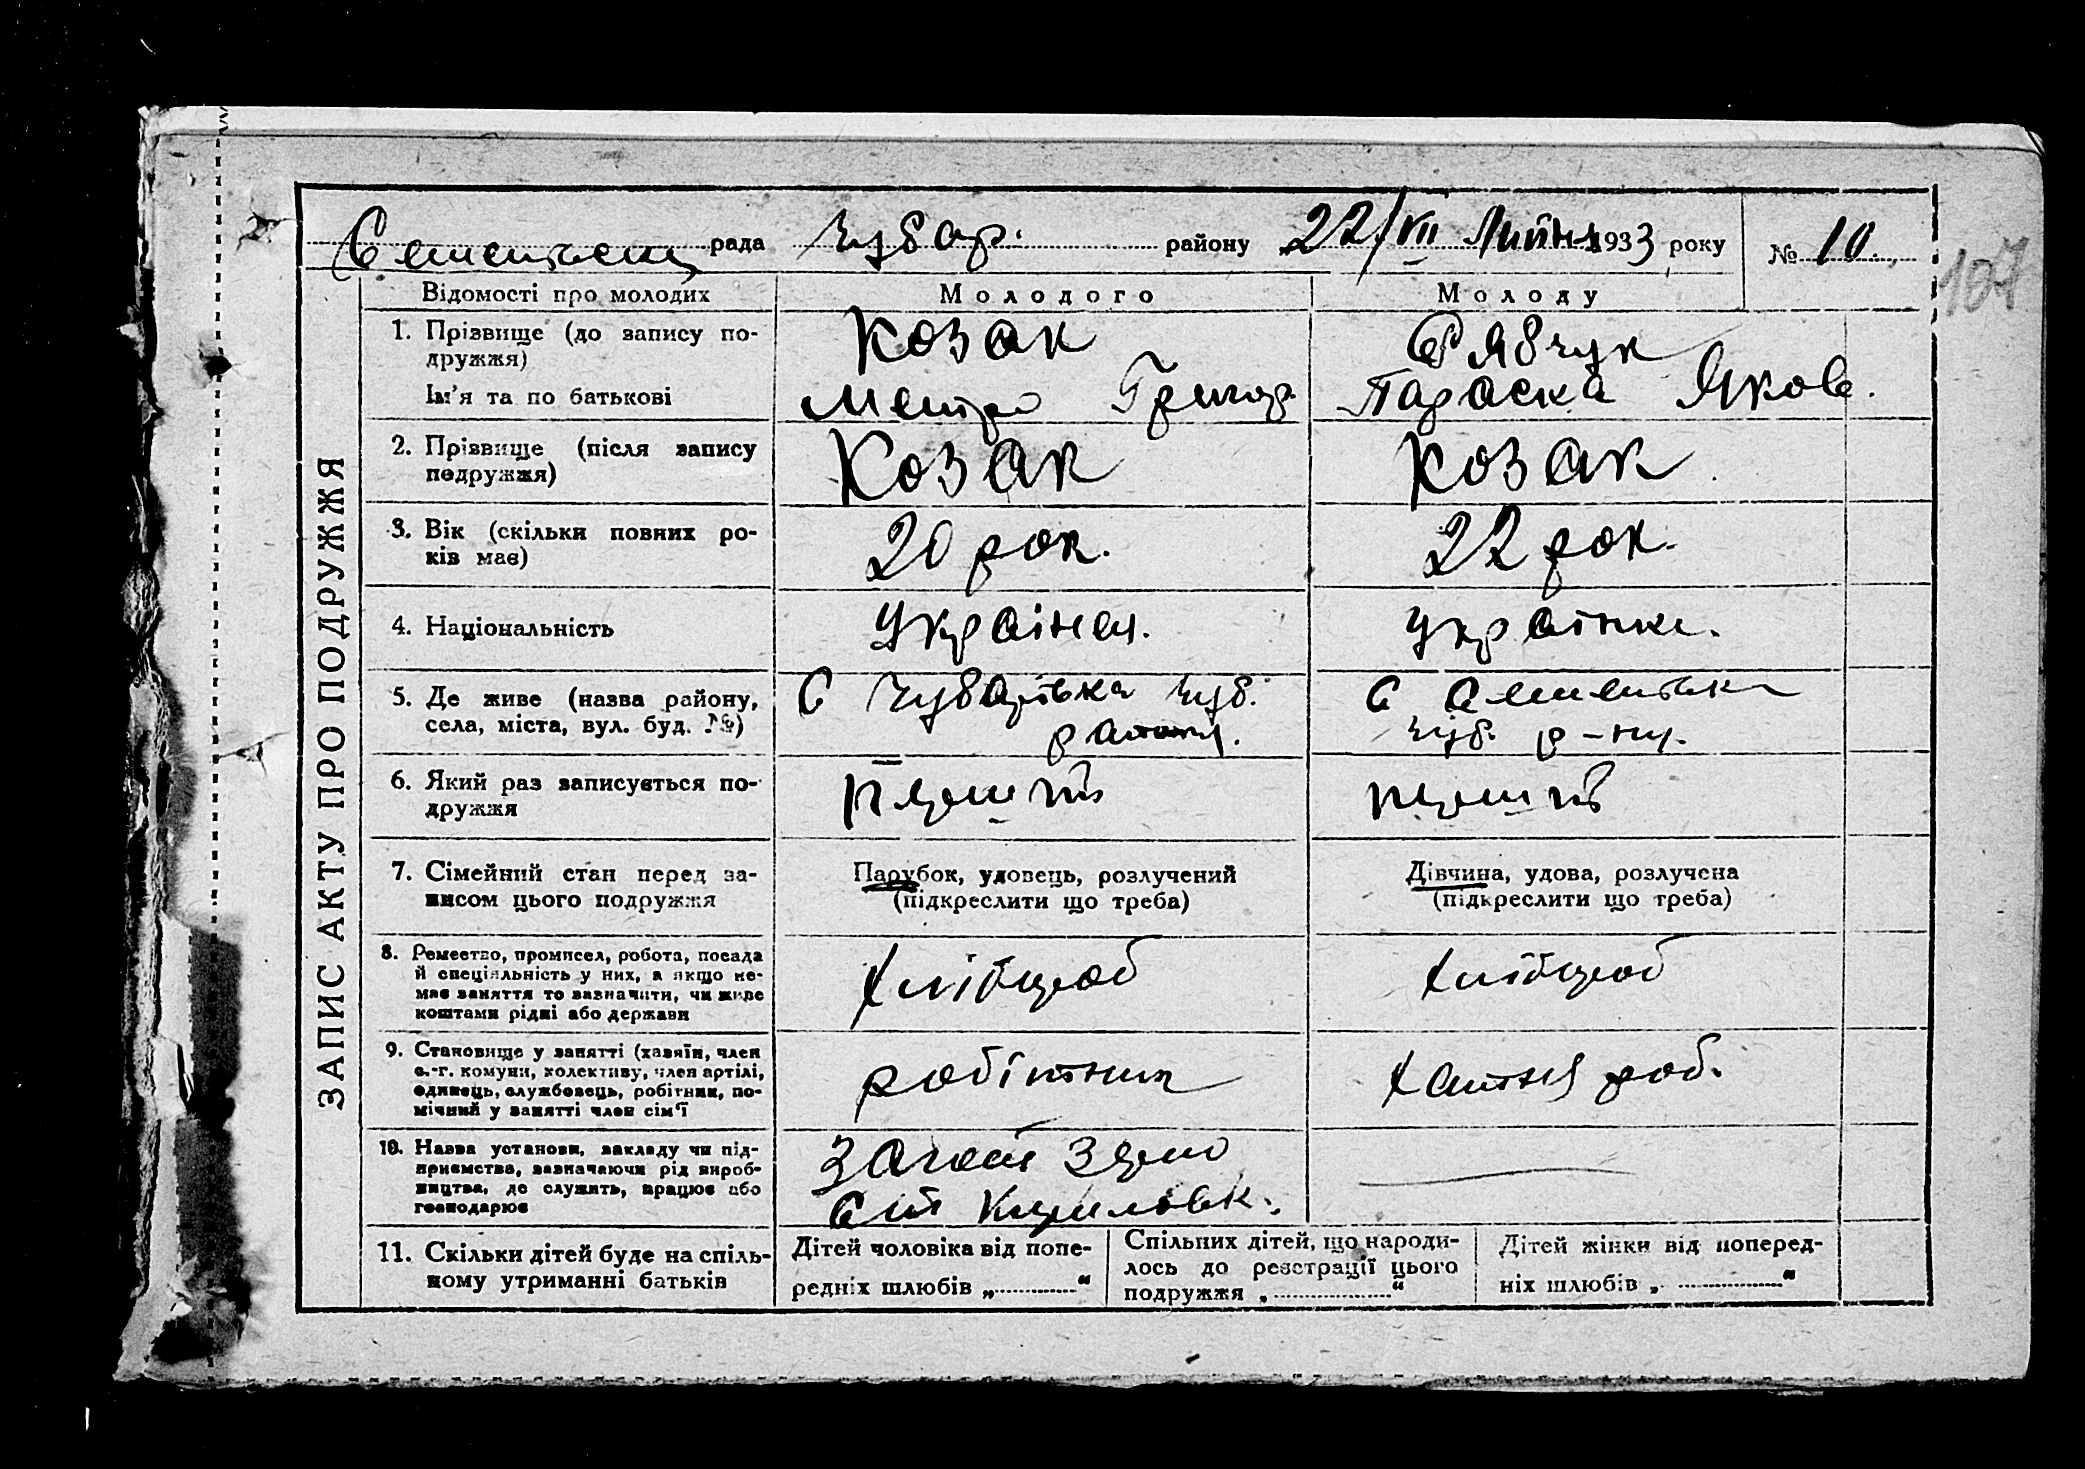 рада Чубар. району 22/VII Липня 1933 року № 10
107
ЗАПИС АКТУ ПРО ПОДРУЖЖЯ
Відомості про молодих Молодого Молоду
1. Прізвище (до запису по-
дружжя)
Козак Рябчук
Ім'я та по батькові
Григор. Параска Яков.
2. Прізвище (після запису
подружжя)
Козак Козак
3. Вік (скільки повних ро-
ків має)
20 рок. 22 рок.
4. Національність
Українец. Українка.
5. Де живе (назва району,
села, міста, вул. буд. №)
С Чубарівка Чуб.
района.
С
Чуб. р-ну.
6. Який раз записується по-
дружжя
перший перший
7. Сімейний стан перед за-
писом цього подружжя
Парубок, удовець, розлучений
(підкреслити що треба)
Дівчина, удова, розлучена
(підкреслити що треба)
8. Ремество, промисел, робота, посада
й спеціяльність у них, а якщо не-
має заняття то зазначити, чи живе
коштами рідні або держави
хлібороб хлібороб
9. Становище у занятті (хазяїн, член
с.-г. комуни, колективу, член артілі,
одинець, службовець, робітник, по-
мічний у занятті член сім'ї
робітник хатня роб.
10. Назва установи, закладу чи під-
приємства, зазначаючи рід вироб-
ництва, де служить, працює або
господарює
Загот Зерно
11. Скільки дітей буде на спіль-
ному утриманні батьків
Дітей чоловіка від попе-
редніх шлюбів „............“
Спільних дітей, що народи-
лось до реєстрації цього
подружжя „..................“
Дітей жінки від поперед-
ніх шлюбів „..................“